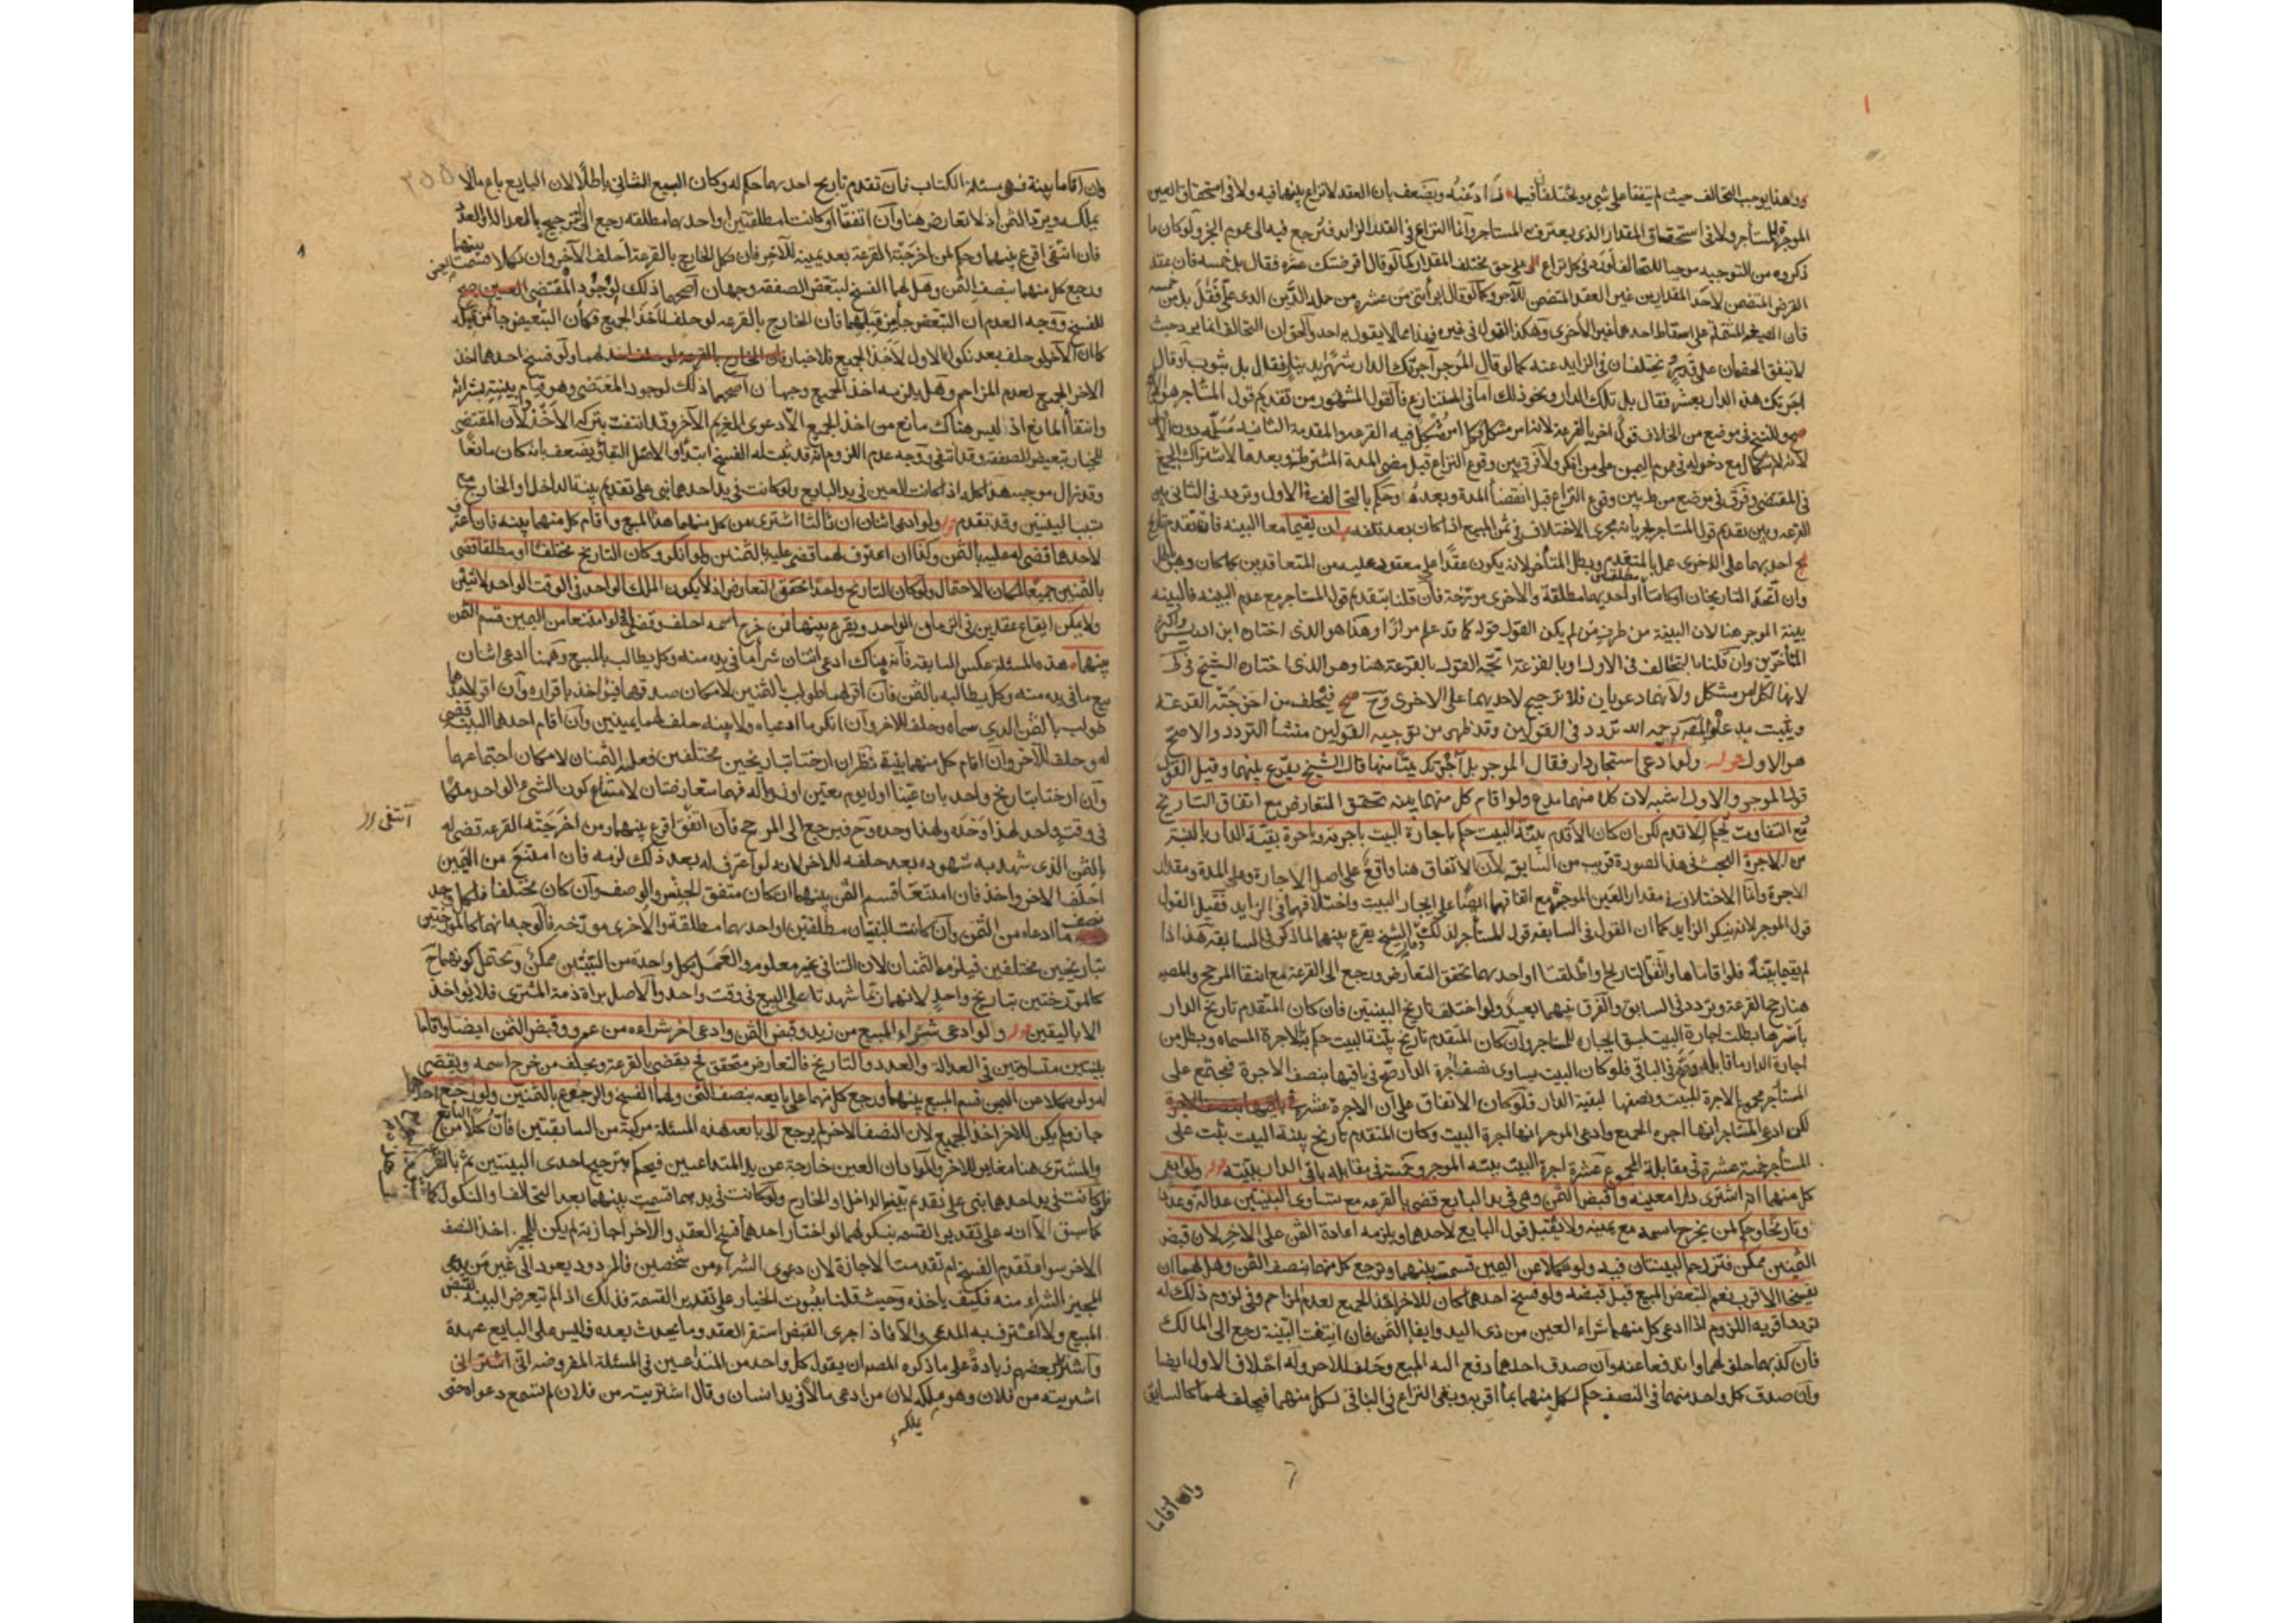 وهذا يوجب التحالف حيث لم يتفقا على شيء ويختلفا فيما زاد عنه ويضعف بان العقد لا نزاع بينهما فيه ولا في استحقاق العين
الموجرة للمستأجر ولا في استحقاق المقدار الذي يعترف به المستاجر وانما النزاع في القدر الزايد فيرجع فيه الى عموم الخبر ولو كان ما
ذكروه من التوجيه موجبا للتحالف لورد في كل نزاع على حق مختلف المقدار كما لو قال اقرضتك عشرة فقال بل خمسة فان عقد
القرض المتضمن لاحد المقدارين غير العقد المتضمن للآخر وكما لو قال ابرأتني من عشرة من جملة الدين الذي علي فقال بل من خمسة
فان الصيغة المشتملة على اسقاط احدهما غير الاخرى وهكذا القول في غيره وهذا مما لا يقول به احد والحق ان التحالف انما يرد حيث
لا يتفق الخصمان على قدر ويختلفان في الزايد عنه كما لو قال الموجر آجرتك الدار شهرا بدينار فقال بل بثوب او قال
اجرتك هذه الدار بعشرة فقال بل تلك الدار ونحو ذلك اما في المتنازع فالقول المشهور من تقديم قول المستاجر هو الاصح
وللشيخ في موضع من الخلاف قول اخر بالقرعة لانه امر مشكل وكل امر مشكل فيه القرعة والمقدمة الثانية مسلمة دون الاولى
لانه لا اشكال مع دخوله في عموم اليمين على من انكر ولا فرق بين وقوع النزاع قبل مضي المدة المشترطة وبعدها لاشتراك الجميع
في المقتضي وفرق في موضع من ط بين وقوع النزاع قبل انقضاء المدة وبعده وحكم بالتحالف في الاول وتردد في الثاني بين
القرعة وبين تقديم قول المستاجر لجريانه مجرى الاختلاف في ثمن المبيع اذا كان بعد تلفه ان يقيما معا البينة فان تقدم تاريخ
احديهما على الاخرى عمل بالمتقدم وبطل المتأخر لانه يكون عقدا على معقود عليه من المتعاقدين كما كان وهو باطل
وان اتحد التاريخان او كانتا مطلقتين او احديهما مطلقة والاخرى مورخة فان قلنا بتقديم قول المستاجر مع عدم البينة فالبينة
بينة الموجر هنا لان البينة من طرف من لم يكن القول قوله كما قد علم مرارا وهذا هو الذي اختاره ابن ادريس واكثر
المتأخرين وان قلنا بالتحالف في الاول او بالقرعة اتجه القول بالقرعة هنا وهو الذي اختاره الشيخ في ط
لانها لكل امر مشكل ولانهما دعويان فلا ترجيح لاحديهما على الاخرى وح فيحلف من اخرجته القرعة
ويثبت مدعاه والمصنف رحمه الله تردد في القولين وقد ظهر من توجيه القولين منشأ التردد والاصح
هو الاول قوله ولو ادعى استيجار دار فقال الموجر بل آجرتك بيتا منها قال الشيخ يقرع بينهما وقيل القول
قول الموجر والاول اشبه لان كلا منهما مدع ولو اقام كل منهما بينة تحقق التعارض مع اتفاق التاريخ
ومع التفاوت يحكم للاقدم لكن ان كان الاقدم بينة البيت حكم باجارة البيت باجرته وباجرة بقية الدار بالنسبة
من الاجرة البحث في هذه الصورة قريب من السابق لان الاتفاق هنا واقع على اصل الاجارة وعلى المدة ومقدار
الاجرة وانما الاختلاف في مقدار العين الموجرة مع اتفاقهما ايضا على ايجار البيت واختلافهما في الزايد فقيل القول
قول الموجر لانه ينكر الزايد كما ان القول في السابقة قول المستأجر لذلك وقال الشيخ يقرع بينهما لما ذكر في السابقة هذا اذا
لم يقيما بينة فلو اقاماها واتفق التاريخ او اطلقتا او احديهما تحقق التعارض ورجع الى القرعة مع انتفاء المرجح والمصنف
هنا رجح القرعة وتردد في السابق والفرق بينهما بعيد ولو اختلف تاريخ البينتين فان كان المتقدم تاريخ الدار
بأسرها بطلت اجارة البيت لسبق ايجاره للمستاجر وان كان المتقدم تاريخ بينة البيت حكم بالاجرة المسماة وبطل من
اجارة الدار ما قابله وصح في الباقي فلو كان البيت يساوي نصف اجرة الدار صح في باقيها بنصف الاجرة فيجتمع على
المستأجر مجموع الاجرة للبيت ونصفها لبقية الدار فلو كان الاتفاق على ان الاجرة عشرة
لكن ادعى المستاجر انها اجرة الجميع وادعى الموجر انها اجرة البيت وكان المتقدم تاريخ بينة البيت ثبت على
المستأجر خمسة عشرة في مقابلة المجموع عشرة اجرة البيت ببينة الموجر وخمسة في مقابلة باقي الدار ببينته قوله ولو ادعى
كل منهما انه اشترى دارا معينة واقبض الثمن وهي في يد البايع قضي بالقرعة مع تساوي البينتين عدالة وعددا
وتاريخا وحكم لمن يخرج اسمه مع يمينه ولا يقبل قول البايع لاحدهما ويلزمه اعادة الثمن على الاخر لان قبض
الثمنين ممكن فتزدحم البينتان فيه ولو نكلا عن اليمين قسمت بينهما ويرجع كل منهما بنصف الثمن وهل لهما ان
يفسخا الاقرب نعم لتبعض المبيع قبل قبضه ولو فسخ احدهما كان للاخر اخذ الجميع لعدم المزاحم وفي لزوم ذلك له
تردد اقربه اللزوم اذا ادعى كل منهما شراء العين من ذي اليد وايفاء الثمن فان انتفت البينة رجع الى المالك
فان كذبهما حلف لهما واندفعا عنه وان صدق احدهما دفع اليه المبيع وحلف للاخر وله احلاف الاول ايضا
وان صدق كل واحد منهما في النصف حكم لكل منهما بما اقر به وبقي النزاع في الباقي لكل منهما فيحلف لهما كالسابق
وان اقاما
وان اقاما بينة فهي مسئلة الكتاب فان تقدم تاريخ احديهما حكم له وكان البيع الثاني باطلا لان البايع باع مالا
يملكه ويرد الثمن اذ لا تعارض هنا وان اتفقا او كانتا مطلقتين او احديهما مطلقة رجع الى الترجيح بالعدالة والعدد
فان انتفى اقرع بينهما وحكم لمن اخرجته القرعة بعد يمينه للآخر فان نكل الخارج بالقرعة احلف الآخر وان نكلا قسمت بينهما
ورجع كل منهما بنصف الثمن وهل لهما الفسخ لتبعض الصفقة وجهان اصحهما ذلك لوجود المقتضي
للفسخ ووجه العدم ان التبعض جاء من قبلهما فان الخارج بالقرعة لو حلف لأخذ الجميع فكأن التبعيض جاء من قبله
كما ان الآخر لو حلف بعد نكول الاول لأخذ الجميع فلا خيار لهما ولو فسخ احدهما اخذ
الاخر الجميع لعدم المزاحم وهل يلزمه اخذ الجميع وجهان اصحهما ذلك لوجود المقتضي وهو قيام بينته بشرائه
وانتفاء المانع اذ ليس هناك مانع من اخذ الجميع الا دعوى الغريم الآخر وقد انتفت بتركه الاخذ ولان المقتضي
للخيار تبعيض الصفقة وقد انتفى ووجه عدم اللزوم انه قد ثبت له الفسخ ابتداء والاصل البقاء ويضعف بانه كان مانعا
وقد زال موجبه هذا كله اذا كانت العين في يد البايع ولو كانت في يد احدهما بنى على تقديم بينة الداخل او الخارج مع
تسبب البينتين وقد تقدم قوله ولو ادعى اثنان ان ثالثا اشترى من كل منهما هذا المبيع واقام كل منهما بينة فان اعترف
لاحدهما قضي له عليه بالثمن وكذا ان اعترف لهما قضي عليه بالثمنين ولو انكر وكان التاريخ مختلفا او مطلقا قضي
بالثمنين جميعا لمكان الاحتمال ولو كان التاريخ واحدا تحقق التعارض اذ لا يكون الملك الواحد في الوقت الواحد لاثنين
ولا يمكن ايقاع عقدين في الزمان الواحد ويقرع بينهما فمن خرج اسمه احلف وقضي له ولو امتنعا من اليمين قسم الثمن
بينهما هذه المسئلة عكس السابقة فانه هناك ادعى اثنان شراء ما في يده منه وكل يطالب بالمبيع وهنا ادعى اثنان
بيع ما في يده منه وكل يطالبه بالثمن فان اقر لهما طولب بالثمنين لامكان صدقهما فيؤاخذ باقراره وان اقر لاحدهما
طولب بالثمن الذي سماه وحلف للاخر وان انكر ما ادعياه ولا بينة حلف لهما يمينين وان اقام احدهما البينة قضي
له وحلف للآخر وان اقام كل منهما بينة نظر ان ارختا بتاريخين مختلفين فعليه الثمنان لامكان اجتماعهما
وان ارختا بتاريخ واحد بان عينتا اول يوم بعينه او زواله فهما متعارضتان لامتناع كون الشيء الواحد ملكا
في وقت واحد لهذا وحده ولهذا وحده وح فيرجع الى المرجح فان اتفق اقرع بينهما ومن اخرجته القرعة قضي له
انتفى
بالثمن الذي شهد به شهوده بعد حلفه للاخر لانه لو اعترف له بعد ذلك لزمه فان امتنع من اليمين
احلف الاخر واخذ فان امتنعا قسم الثمن بينهما ان كان متفق الجنس والوصف وان كان مختلفا فلكل واحد
نصف ما ادعاه من الثمن وان كانت البينتان مطلقتين او احديهما مطلقة والاخرى مورخة فالوجه انهما كالمورختين
بتاريخين مختلفين فيلزمه الثمنان لان التنافي غير معلوم والعمل بكل واحدة من البينتين ممكن ويحتمل كونهما ح
كالمورختين بتاريخ واحد لانهما ربما شهدتا على البيع في وقت واحد والاصل براءة ذمة المشتري فلا يؤاخذ
الا باليقين قوله ولو ادعى شراء المبيع من زيد وقبض الثمن وادعى اخر شراءه من عمرو وقبض الثمن ايضا واقاما
بينتين متساويتين في العدالة والعدد والتاريخ فالتعارض متحقق فح يقضى بالقرعة ويحلف من خرج اسمه ويقضى
له ولو نكلا عن اليمين قسم المبيع بينهما ورجع كل منهما على بايعه بنصف الثمن ولهما الفسخ والرجوع بالثمنين ولو رجع احدهما
جاز ولم يكن للاخر اخذ الجميع لان النصف الاخر لم يرجع الى بايعه هذه المسئلة مركبة من السابقتين فان كلا من البايع
والمشتري هنا مغاير للاخر والمراد ان العين خارجة عن يد المتداعيين فيحكم بترجيح احدى البينتين ثم بالقرعة
فلو كانت في يد احدهما بنى على تقديم بينة الداخل والخارج ولو كانت في يديهما قسمت بينهما بعد التحالف او النكول كما
كما سبق الا انه على تقدير القسمة بنكولهما لو اختار احدهما فسخ العقد والاخر اجازته لم يكن للمجيز اخذ النصف
الاخر سواء تقدم الفسخ ام تقدمت الاجازة لان دعوى الشراء من شخصين فالمردود يعود الى غير من يدعي
المجيز الشراء منه فكيف ياخذه وحيث قلنا بثبوت الخيار على تقدير القسمة فذلك اذا لم تتعرض البينة لقبض
المبيع ولا اعترف به المدعي والا فاذا جرى القبض استقر العقد وما يحدث بعده فليس على البايع عهدة
واشترط بعضهم زيادة على ما ذكره المصنف ان يقول كل واحد من المتداعيين في المسئلة المفروضة انني
اشتريته من فلان وهو ملكه لان من ادعى مالا في يد انسان وقال اشتريته من فلان لم تسمع دعواه حتى
يملكه